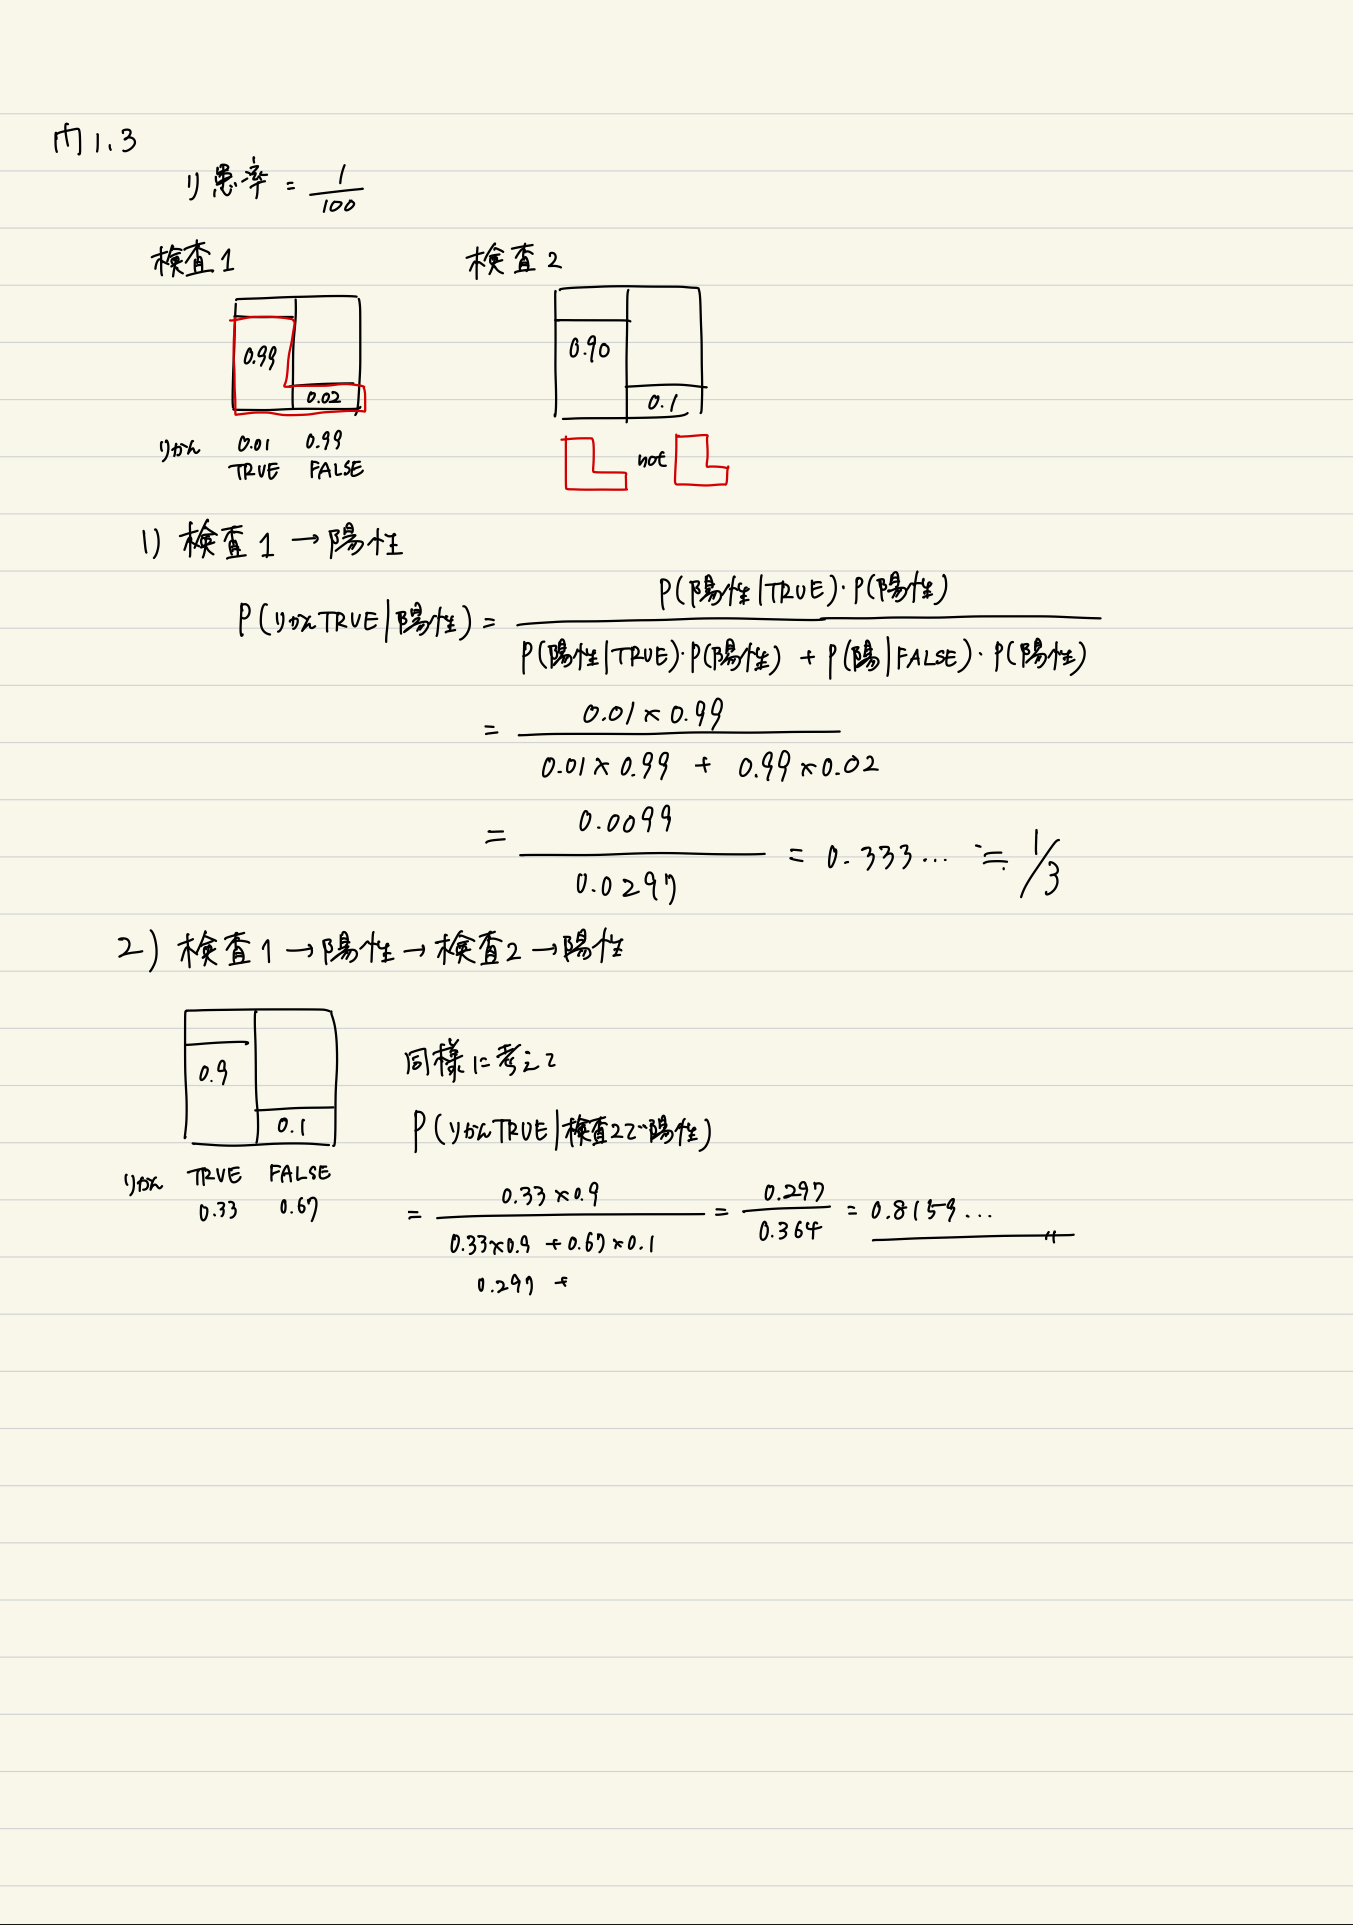 門1.3
り患率 = 1/100
検査1
検査2
0.99
0.02
0.90
0.1
りかん 0.01 0.99
TRUE FALSE
not
1) 検査1 → 陽性
P(りかんTRUE|陽性) = P(陽性|TRUE)・P(陽性) / P(陽性|TRUE)・P(陽性) + P(陽|FALSE)・P(陽性)
= 0.01×0.99 / 0.01×0.99 + 0.99×0.02
= 0.0099 / 0.0297 = 0.333... ≒ 1/3
2) 検査1→陽性→検査2→陽性
0.9
0.1
りかん TRUE FALSE
0.33 0.67
同様に考えて
P(りかんTRUE|検査2で陽性)
= 0.33×0.9 / 0.33×0.9 + 0.67×0.1 = 0.297 / 0.364 = 0.8159...
0.297 +